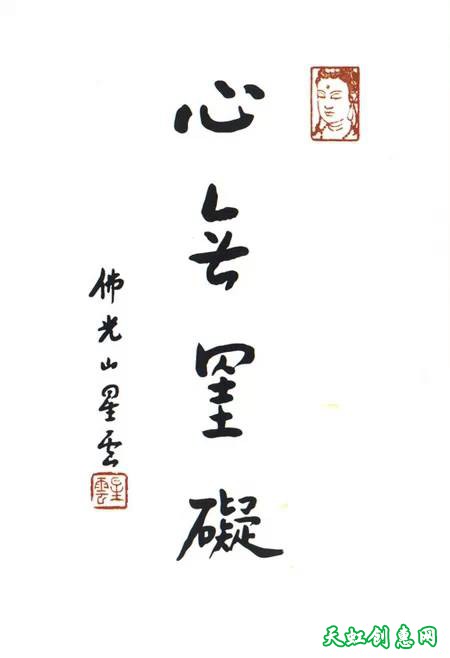 心無罣礙
佛光山星雲
星雲
天虹创意网